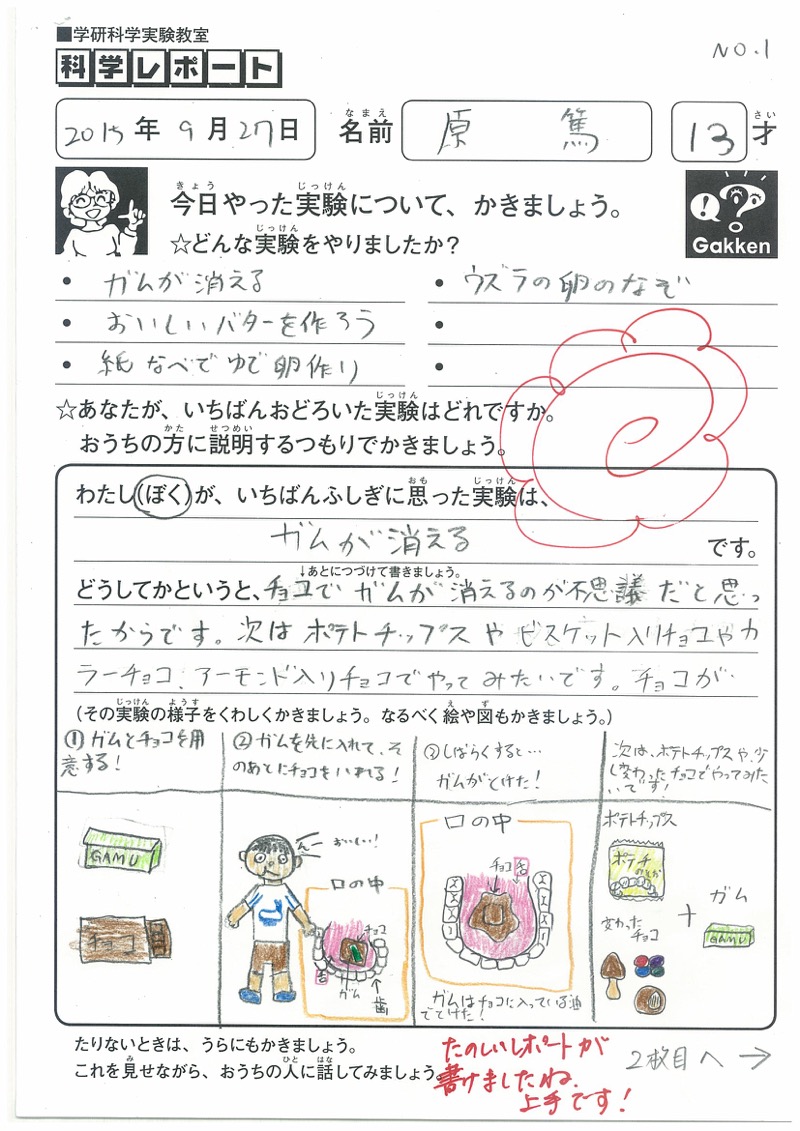 ■学研科学実験教室
科学レポート
NO.1
2015年9月27日
名前 なまえ 原 篤 13才 さい
今日やった実験について、かきましょう。
きょう じっけん
☆どんな実験をやりましたか?
じっけん
Gakken
• ガムが消える
• ウズラの卵のなぞ
• おいしいバターを作ろう
•
• 紙なべでゆで卵作り
•
☆あなたが、いちばんおどろいた実験はどれですか。
じっけん
おうちの方に説明するつもりでかきましょう。
かた せつめい
わたし(ぼく)が、いちばんふしぎに思った実験は、
おも じっけん
ガムが消える です。
↓あとにつづけて書きましょう。
どうしてかというと、チョコでガムが消えるのが不思議だと思っ
たからです。次はポテトチップスやビスケット入りチョコやカ
ラーチョコ、アーモンド入りチョコでやってみたいです。チョコが…
(その実験の様子をくわしくかきましょう。なるべく絵や図もかきましょう。)
じっけん ようす え ず
①ガムとチョコを用
意する!
②ガムを先に入れて、そ
のあとにチョコをいれる!
③しばらくすると…
ガムがとけた!
次は、ポテトチップスや、少
し変わったチョコでやってみた
いです!
GAMU
チョコ
おいしい!
口の中
チョコ
舌
ガム
歯
口の中
チョコ
舌
ガムはチョコに入っている油
でとけた!
ポテトチップス
ポテチ
変わった
チョコ
+
ガム
GAMU
たりないときは、うらにもかきましょう。
これを見せながら、おうちの人に話してみましょう
み ひと はな
たのしいレポートが
書けましたね。
上手です!
2枚目へ→